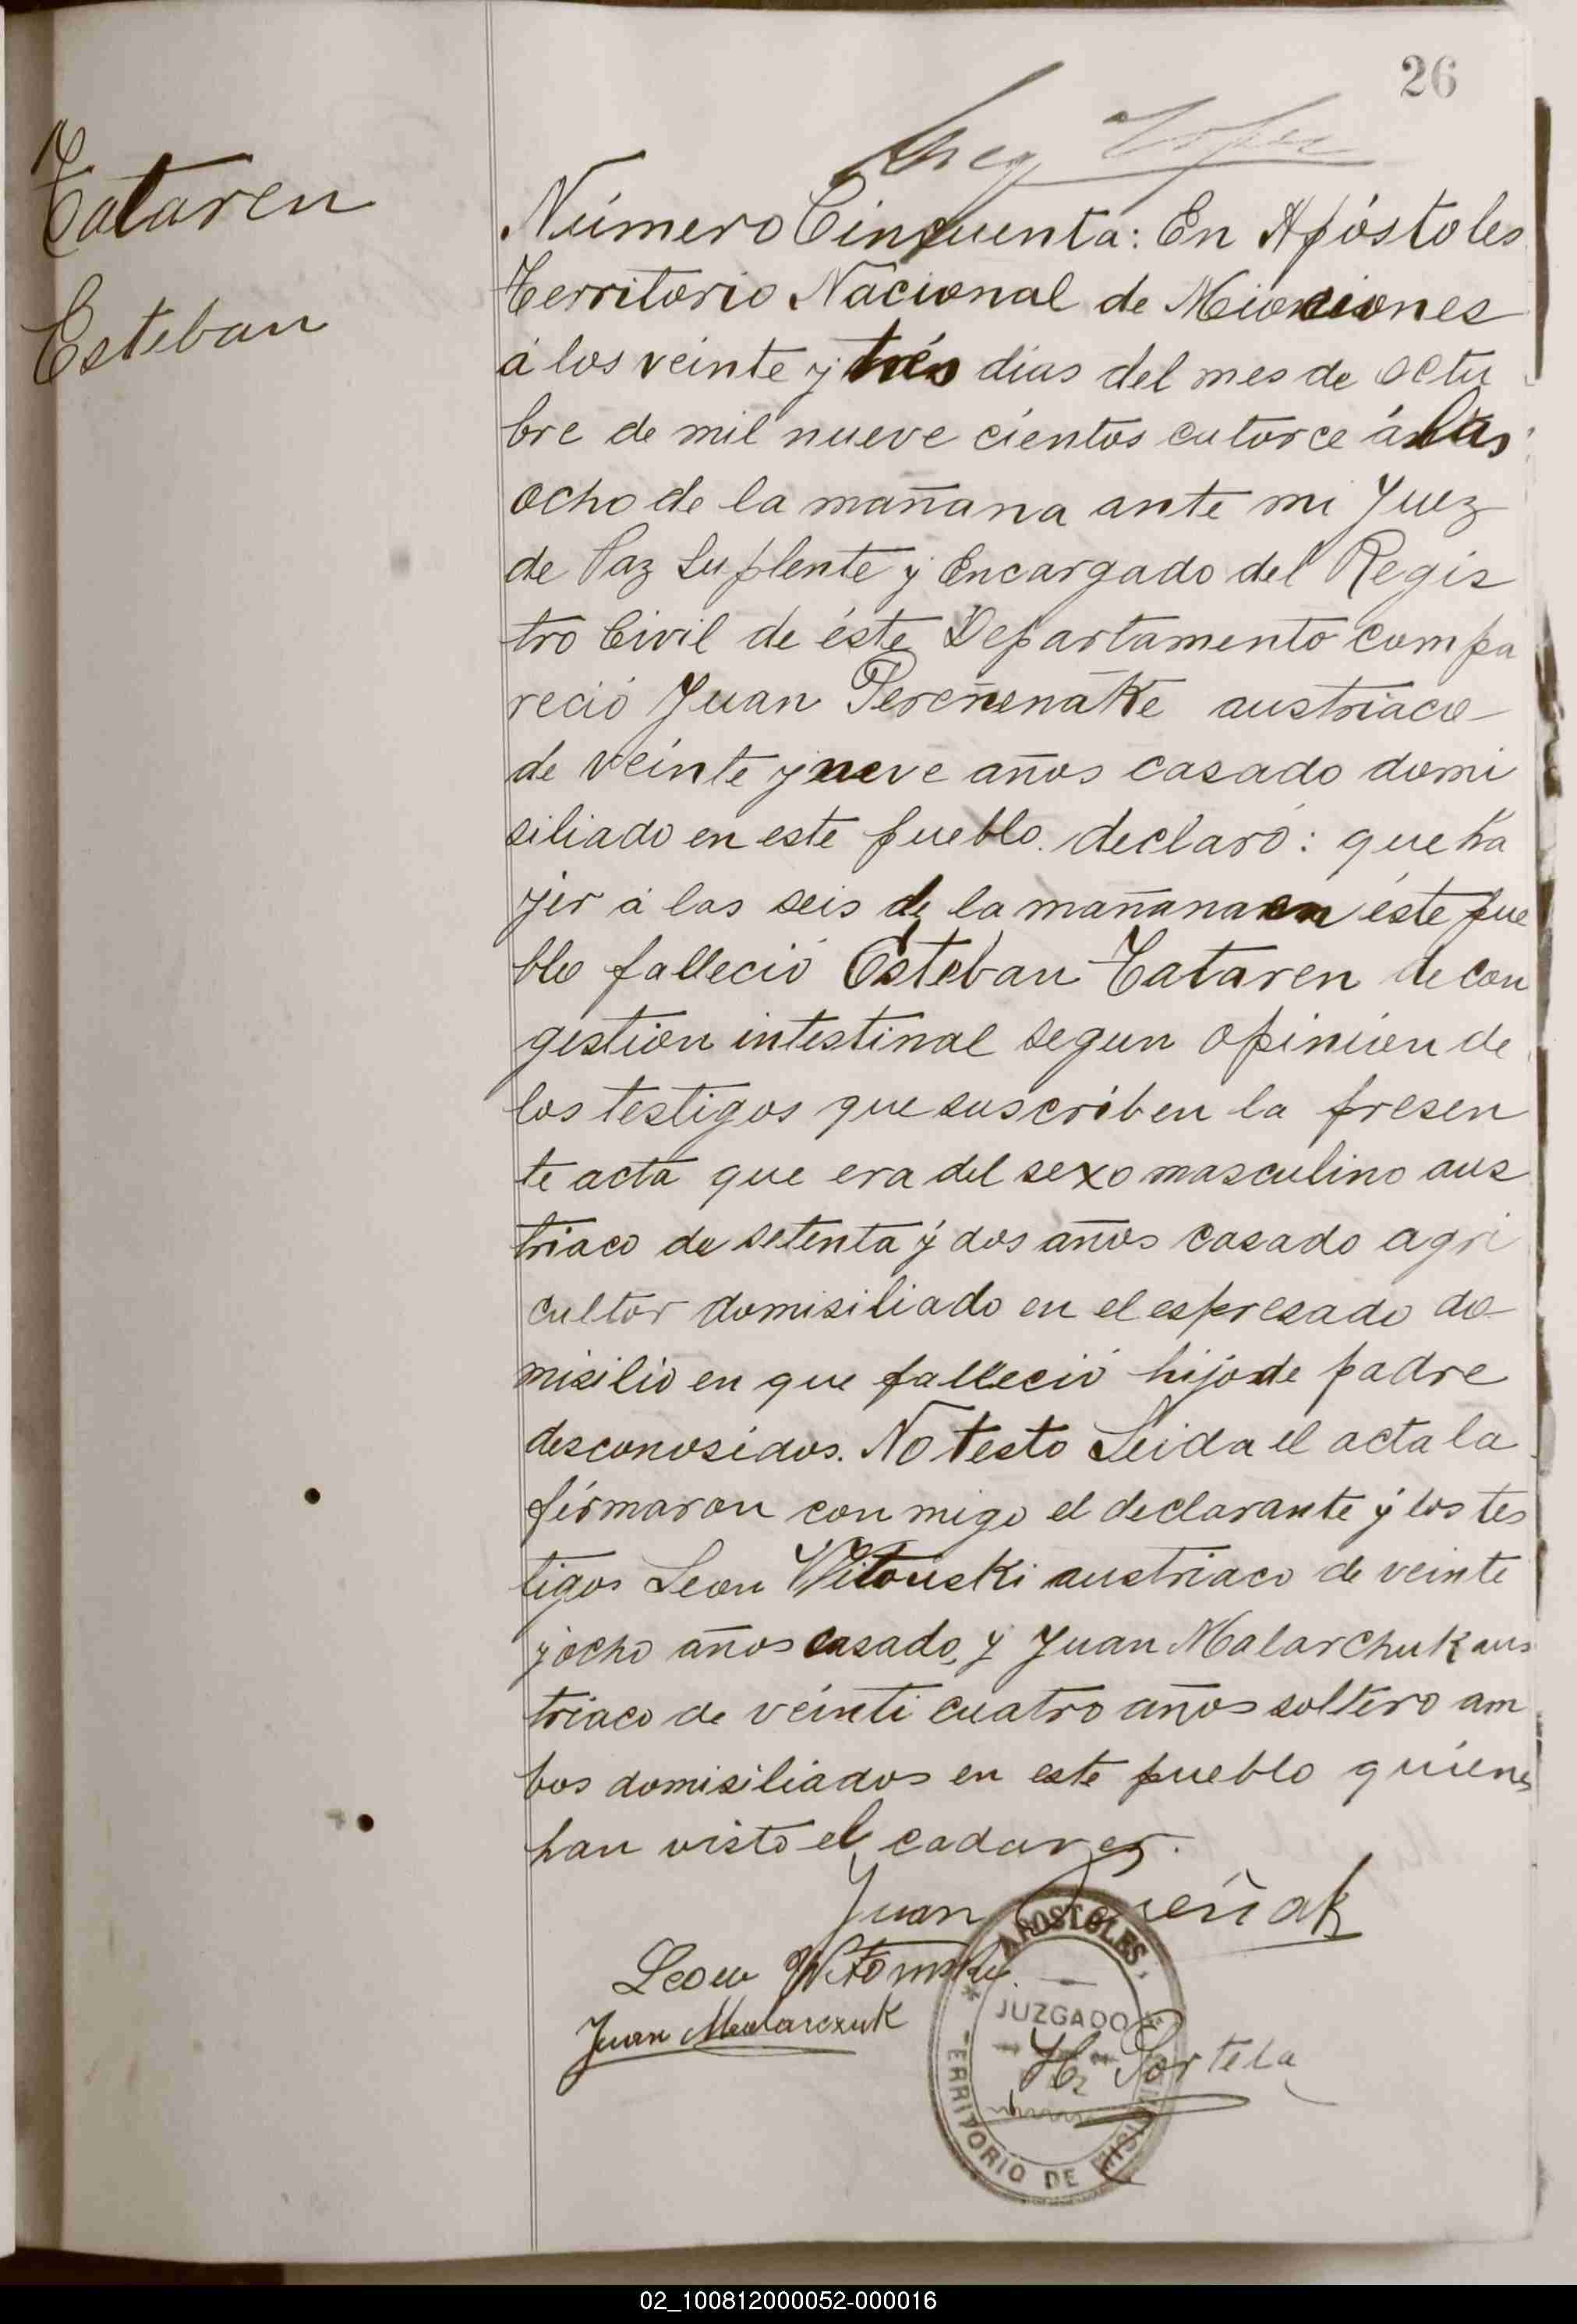 26
Tataren
Esteban
Número Cincuenta: En Apóstoles
Territorio Nacional de Misiones
á los veinte y trés dias del mes de octu
bre de mil nueve cientos catorce á las
ocho de la mañana ante mi Juez
de Paz Suplente y Encargado del Regis
tro Civil de éste Departamento compa
reció Juan austriaco
de veinte y nueve años casado domi
siliado en este pueblo. declaró: que ha
yir á las seis de la mañana en éste pue
blo falleció Esteban Tataren de con
gestion intestinal segun opinion de
los testigos que suscriben la presen
te acta que era del sexo masculino aus
triaco de setenta y dos años casado agri
cultor domisiliado en el espresado do
misilio en que falleció hijo de padre
desconosidos. No testo Leida el acta la
firmaron con migo el declarante y los tes
tigos Leon Witouski austriaco de veinte
y ocho años casado, y Juan Malarchuk aus
triaco de veinti cuatro años soltero am
bos domisiliados en este pueblo quienes
han visto el cadaver.
Juan
Leon
Juan Malarczuk
APOSTOLES
JUZGADO
H. Portela
TERRITORIO DE MISIONES
02_100812000052-000016